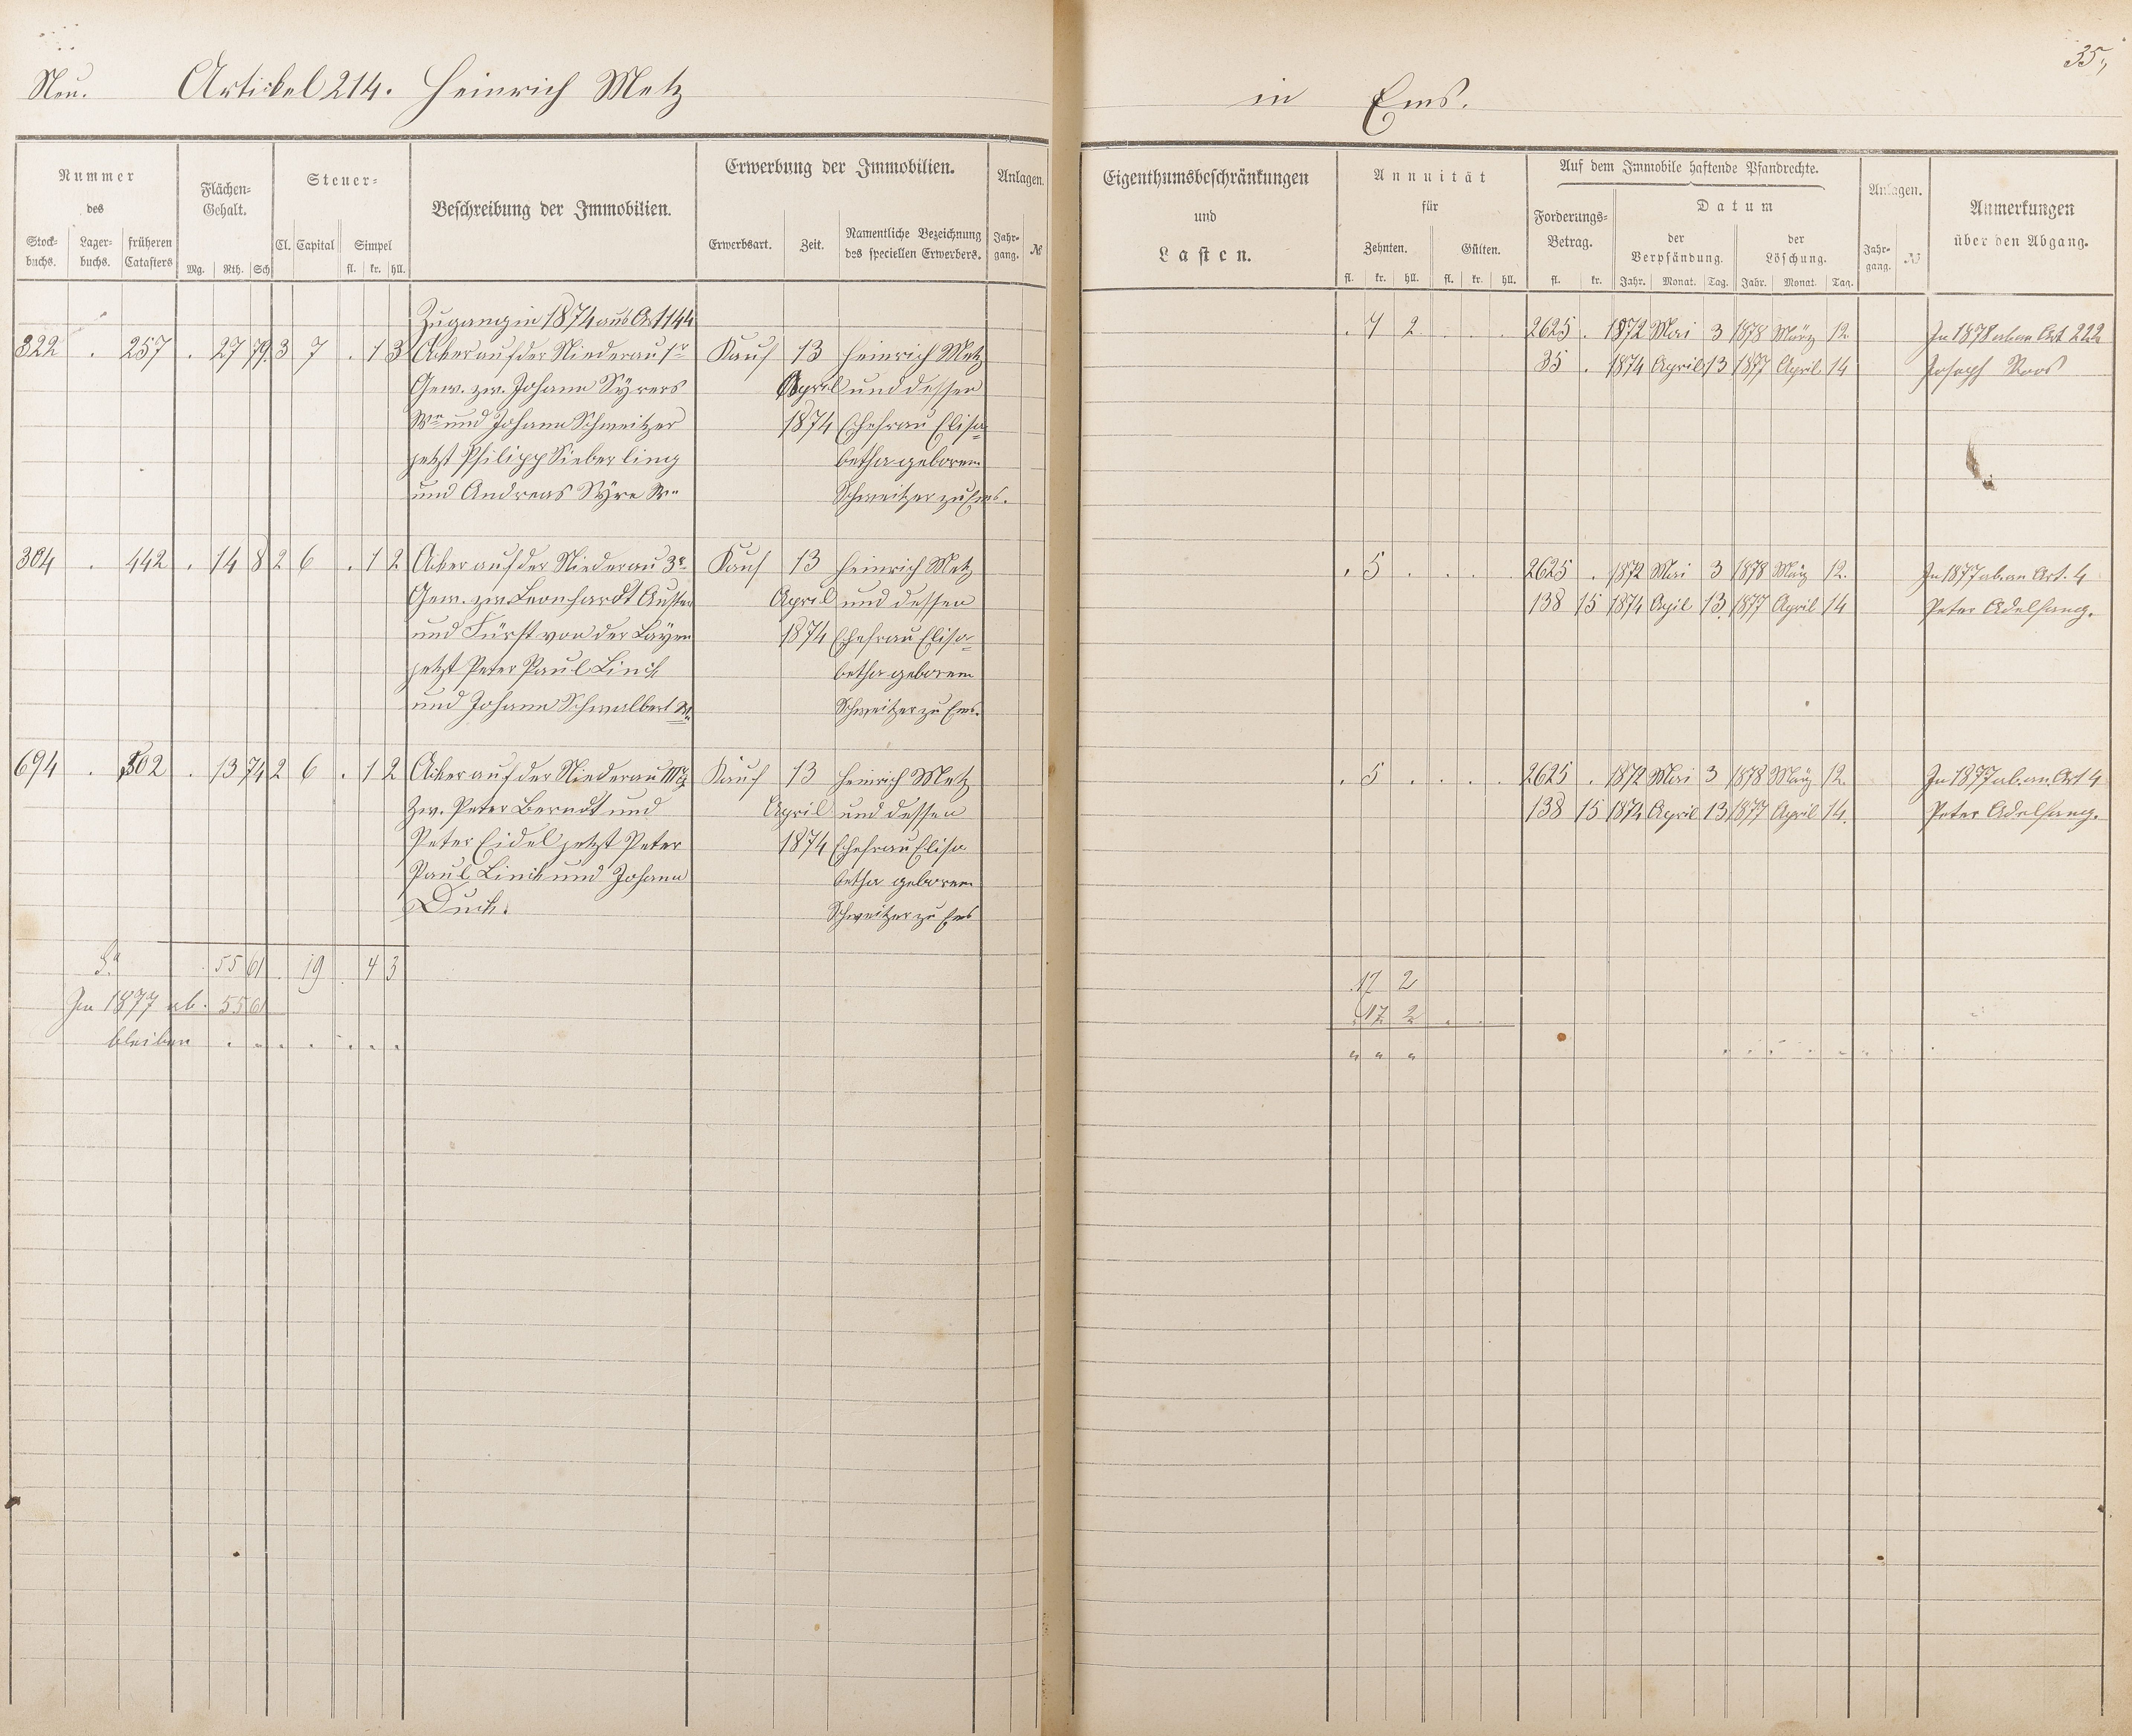 35,
Neu. Artikel 214. Heinrich Metz in Ems.
Nummer des
Stockbuchs. Lagerbuchs. früheren Catasters
Flächen-Gehalt.
Mg. Rth. Sch
Steuer-
Cl. Capital Simpel
fl. kr. hll.
Beschreibung der Immobilien.
Erwerbung der Immobilien.
Erwerbsart. Zeit. Namentliche Bezeichnung des speciellen Erwerbers.
Anlagen.
Jahrgang. №
Eigenthumsbeschränkungen
und
Lasten.
Annuität
für
Zehnten. Gülten.
fl. kr. hll. fl. kr. hll.
Auf dem Immobile haftende Pfandrechte.
Forderungs-Betrag.
fl. kr.
Datum
der Verpfändung. der Löschung.
Jahr. Monat. Tag. Jahr. Monat. Tag.
Anlagen.
Jahrgang. №
Anmerkungen
über den Abgang.
Zugang in 1874 aus Art 144
322 . 257 . 27 79 3 7 . 1 3 Acker auf der Niederau 1r Kauf 13 Heinrich Metz . 7 2 . . . 2625 . 1872 Mai 3 1878 März 12. In 1878 ab an Art 222
Gew. zw. Johann Syrers April und dessen 35 . 1874 April 13 1877 April 14 Joseph Roos
Wn und Johann Schweitzer 1874 Ehefrau Elisa-
jetzt Philipp Sieberling betha geborene
und Andreas Syre Wn Schweitzer zu Ems.
304 . 442 . 14 8 2 6 . 1 2 Acker auf der Niederau 3r Kauf 13 Heinrich Metz . 5 . . . . 2625 . 1872 Mai 3 1878 März 12. In 1877 ab an Art. 4
Gew. zw. Leonhardt April und dessen 138 15 1874 April 13. 1877 April 14 Peter Adelfang.
und Fürst von der Layen 1874 Ehefrau Elisa-
jetzt Peter Paul Linck betha geborene
und Johann Schwalbert Wn Schweitzer zu Ems.
694 . 302 . 13 74 2 6 . 1 2 Acker auf der Niederau Kauf 13 Heinrich Metz . 5 . . . . 2625 . 1872 Mai 3 1878 März 12. In 1877 ab an Art 4
zw. Peter Berndt und April und dessen 138 15 1874 April 13 1877 April 14. Peter Adelfang.
Peter Eidel jetzt Peter 1874 Ehefrau Elisa
Paul Linck und Johann betha geborene
Duck. Schweitzer zu Ems
Sa . 55 61 . 19 . 4 3 . 17 2
In 1877 ab. 55 61 . 17 2 . .
bleiben . . . . . . . " " "